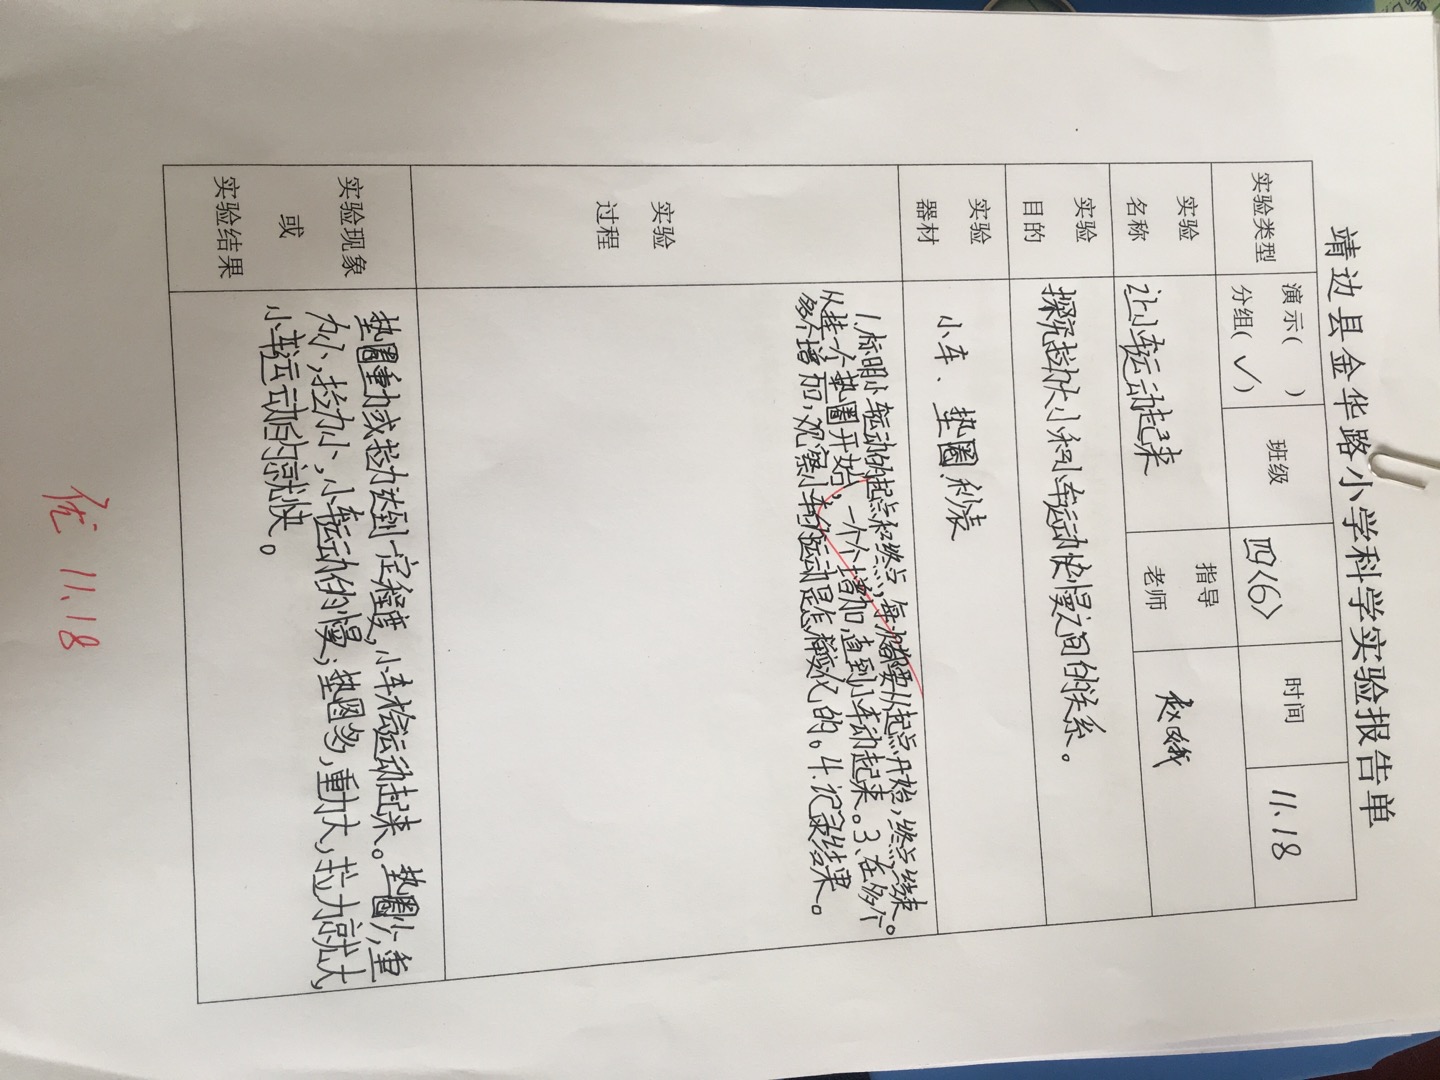 靖边县金华路小学科学实验报告单
实验类型
演示( )
分组(✓)
班级
四<6>
时间
11.18
实验
名称
让小车运动起来
指导
老师
实验
目的
探究拉力大小和小车运动快慢之间的关系。
实验
器材
小车、垫圈、秒表
实验
过程
1.标明小车运动的起点和终点,每次都要从起点开始,终点结束。
从挂一个垫圈开始,一个个增加,直到小车动起来。3、在多个
多个增加,观察小车的运动是怎样变化的。4.记录结果。
实验现象
或
实验结果
垫圈重力或拉力达到一定程度,小车才会运动起来。垫圈少,重
力小,拉力小,小车运动的慢;垫圈多,重力大,拉力就大,
小车运动的就快。
优 11.18